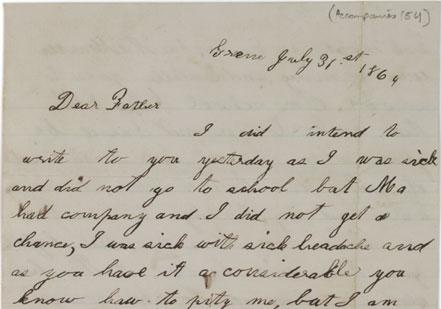 (Accompanies 154)
Greene July 31.st 1864
Dear Father
I did intend to
write to you yesterday as I was sick
and did not go to school but Ma
had company and I did not get a
chance, I was sick with sick headache and
as you have it a considerable you
know how to pity me, but I am